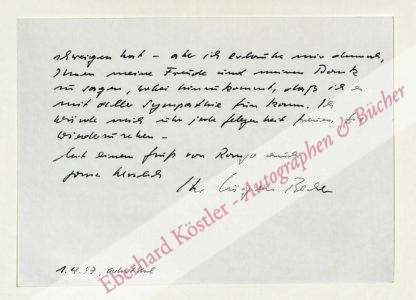 schweigen hat – aber ich erlaube mir dennoch,
Ihnen meine Freude und meinen Dank
zu sagen, wobei hinzukommt, daß ich es
mit aller Sympathie tun kann. Ich
würde mich über jede Gelegenheit freuen,
wiederzusehen –
Mit einem Gruß von
Ihr
1.4.57,
Eberhard Köstler - Autographen & Bücher